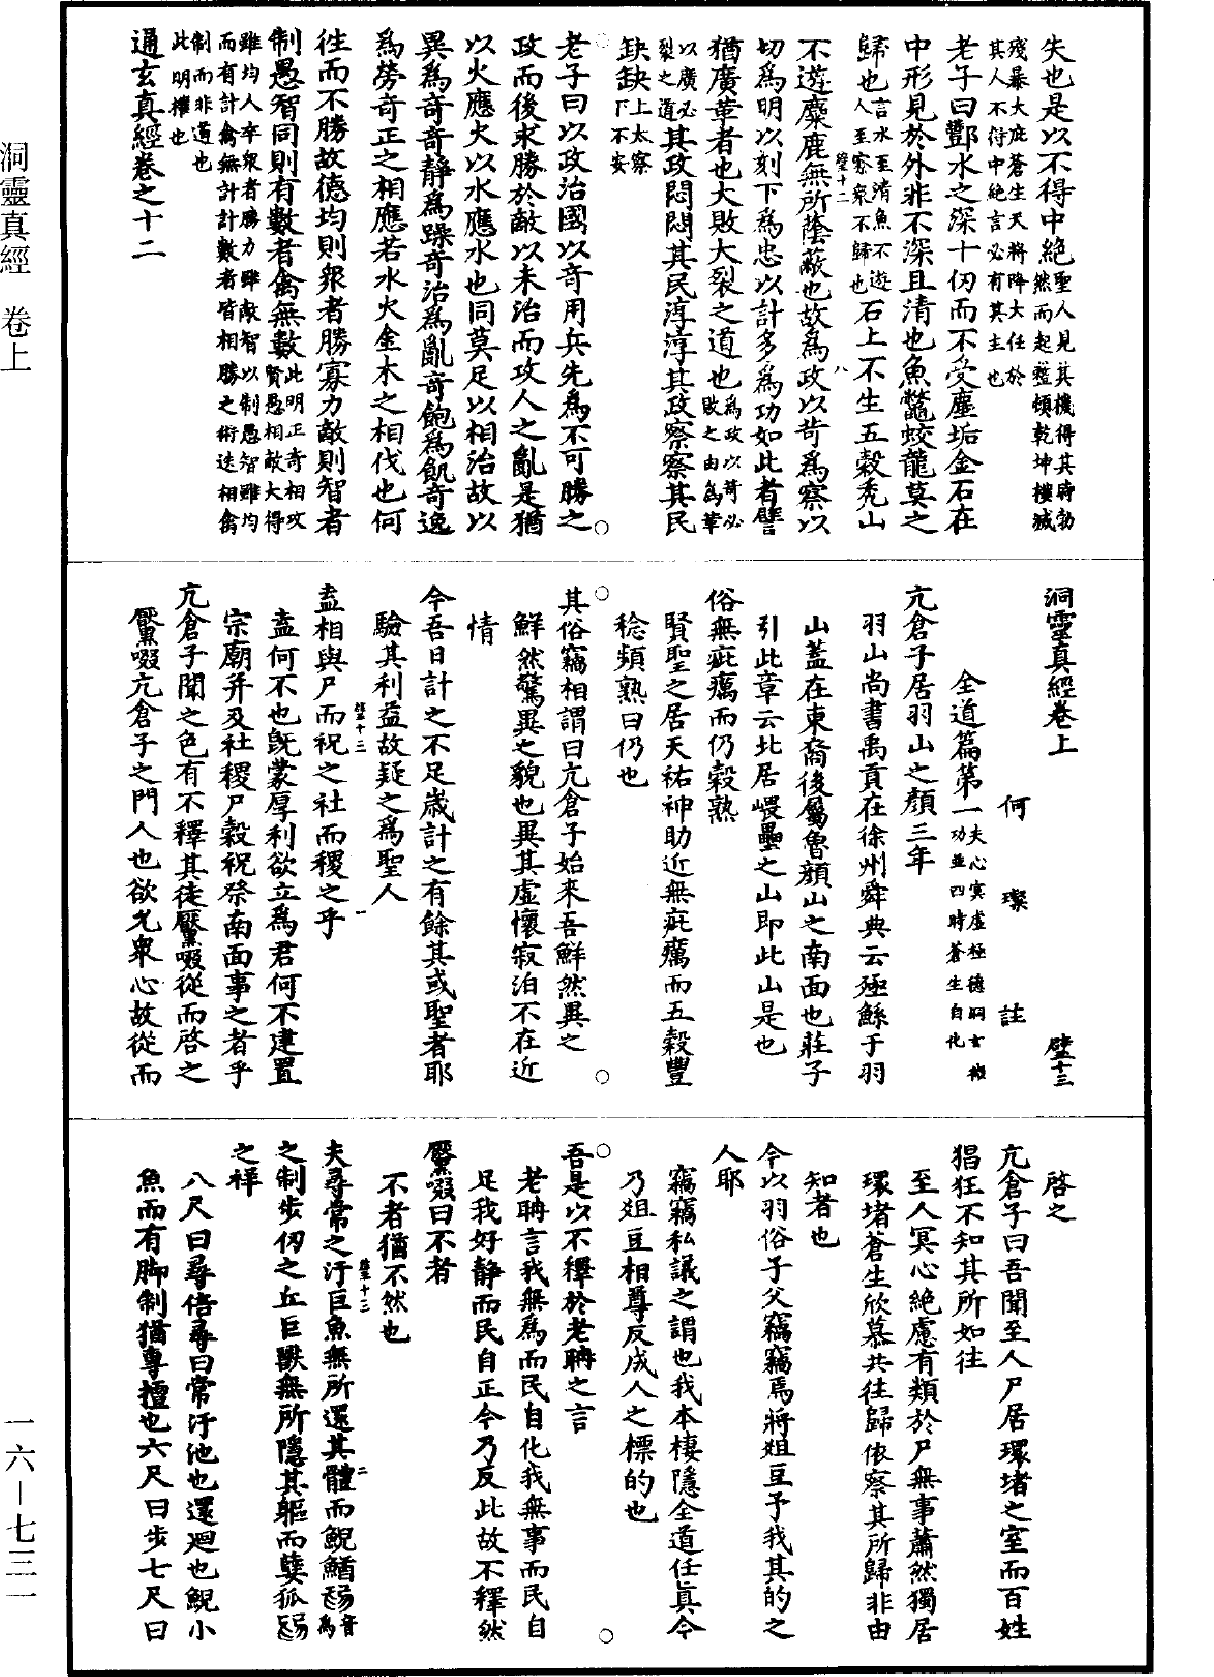 失也是以不得中絕聖人見其機得其時勃然而起整頓乾坤撲滅
殘暴大庇蒼生天將降大任於其人不得中絕言必有其主也
老子曰酆水之深十仞而不受塵垢金石在
中形見於外非不深且清也魚鼈蛟龍莫之
歸也言水至清魚不遊人至察衆不歸也石上不生五穀禿山
不遊麋鹿無所蔭蔽也故為政以苛為察以
切為明以刻下為忠以計多為功如此者譬
猶廣革者也大敗大裂之道也為政以苛必敗之由為革
以廣必裂之道其政悶悶其民淳淳其政察察其民
缺缺上太察下不安
老子曰以政治國以奇用兵先為不可勝之
政而後求勝於敵以未治而攻人之亂是猶
以火應火以水應水也同莫足以相治故以
異為奇奇靜為躁奇治為亂奇飽為飢奇逸
為勞奇正之相應若水火金木之相伐也何
往而不勝故德均則衆者勝寡力敵則智者
制愚智同則有數者禽無數此明正奇相攻賢愚相敵大得
雖均人卒衆者勝力雖敵智以制愚智雖均而有計禽無計計數者皆相勝之術遠相禽
制而非道也此明權也
通玄真經卷之十二
洞靈真經卷上 壁十三
何 璨 註
全道篇第一夫心冥虛極德洞玄微功並四時蒼生自化
亢倉子居羽山之顏三年
羽山尚書禹貢在徐州舜典云殛鯀于羽
山蓋在東裔後屬魯顏山之南面也莊子
引此章云北居喂壘之山即此山是也
俗無疵癘而仍穀熟
賢聖之居天祐神助近無疵癘而五穀豐
稔頻熟曰仍也
其俗竊相謂曰亢倉子始來吾鮮然異之
鮮然驚異之貌也異其虛懷寂泊不在近
情
今吾日計之不足歲計之有餘其或聖者耶
驗其利益故疑之為聖人
盍相與尸而祝之社而稷之乎
盍何不也旣蒙厚利欲立為君何不建置
宗廟并及社稷尸穀祝祭南面事之者乎
亢倉子聞之色有不釋其徒厬啜從而啓之
厬啜亢倉子之門人也欲允衆心故從而
啓之
亢倉子曰吾聞至人尸居環堵之室而百姓
猖狂不知其所如往
至人冥心絕慮有類於尸無事蕭然獨居
環堵蒼生欣慕共往歸依察其所歸非由
知者也
今以羽俗子父竊竊焉將俎豆予我其的之
人耶
竊竊私議之謂也我本棲隱全道任眞今
乃俎豆相尊反成人之標的也
吾是以不釋於老聃之言
老聃言我無為而民自化我無事而民自
足我好靜而民自正今乃反此故不釋然
厬啜曰不者
不者猶不然也
夫尋常之汙巨魚無所還其體而鯢鰌為
之制步仞之丘巨獸無所隱其軀而㜸狐為
之祥
八尺曰尋倍尋曰常汙池也還廻也鯢小
魚而有脚制猶專擅也六尺曰步七尺曰
洞靈真經 卷上
一六—七三一